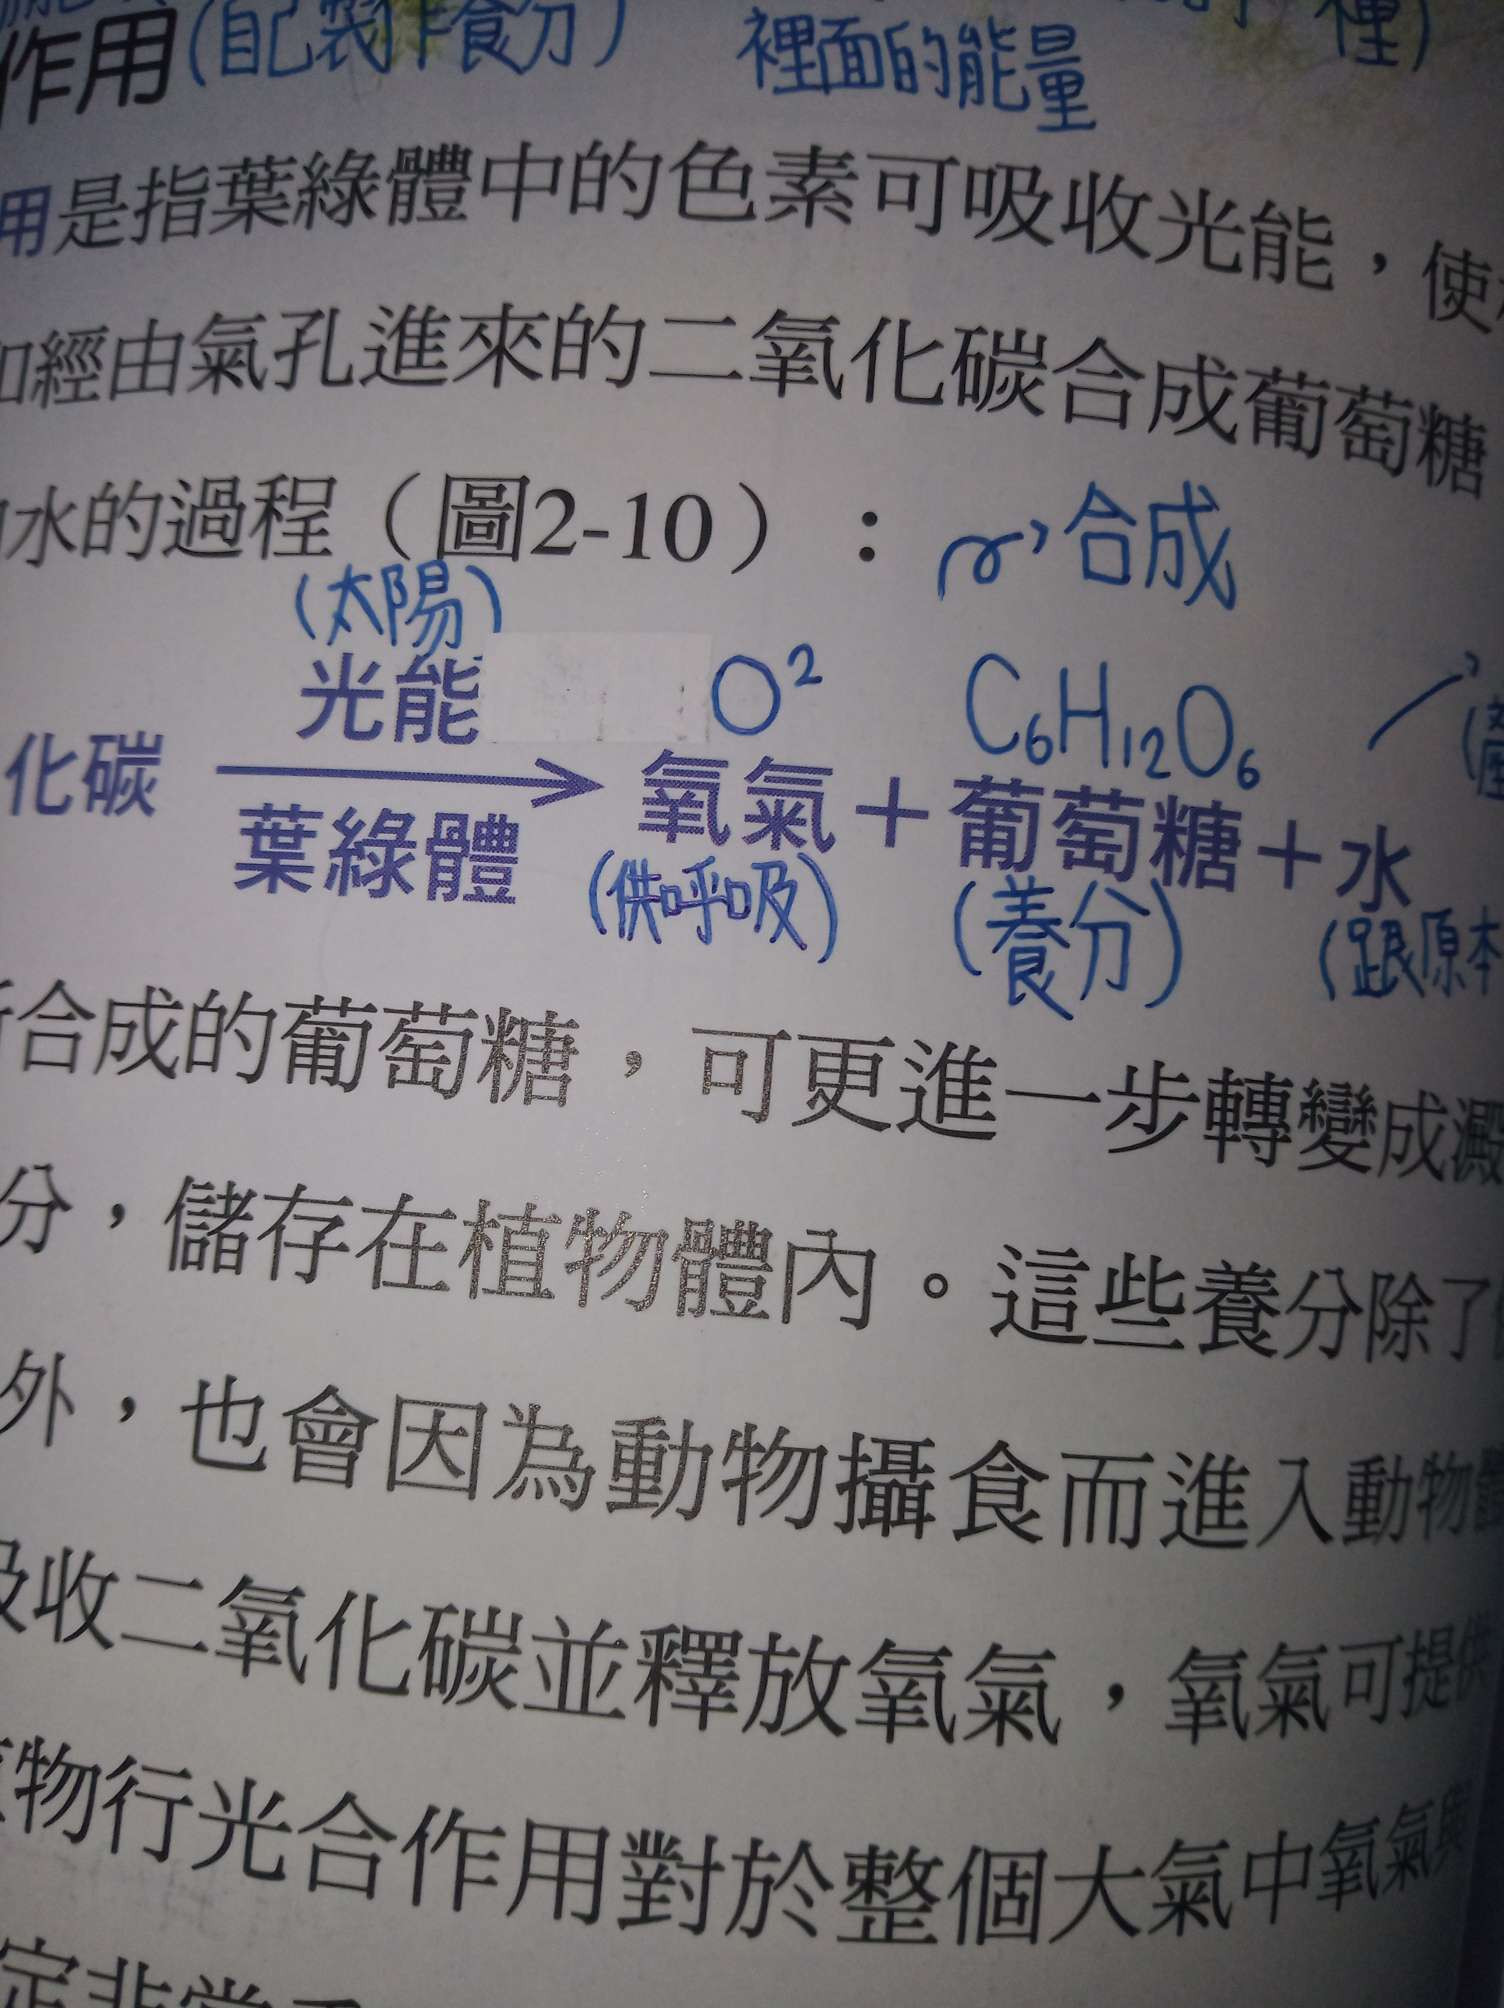 作用(自己製作食分) 裡面的能量 種)
用是指葉綠體中的色素可吸收光能，使
和經由氣孔進來的二氧化碳合成葡萄糖
水的過程（圖2-10）： 合成
(太陽)
光能 O² C₆H₁₂O₆
化碳 氧氣＋葡萄糖＋水
葉綠體
(供呼吸) (養分) (跟原本
合成的葡萄糖，可更進一步轉變成澱
分，儲存在植物體內。這些養分除了
外，也會因為動物攝食而進入動物體
吸收二氧化碳並釋放氧氣，氧氣可提供
物行光合作用對於整個大氣中氧氣與
定非常